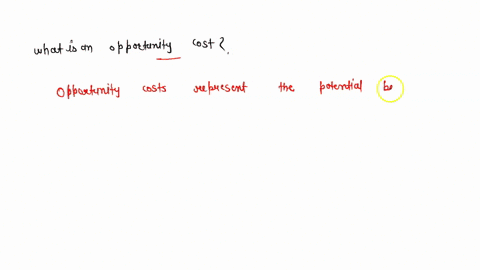 what is an opportunity cost?
Opportunity costs represent the potential be